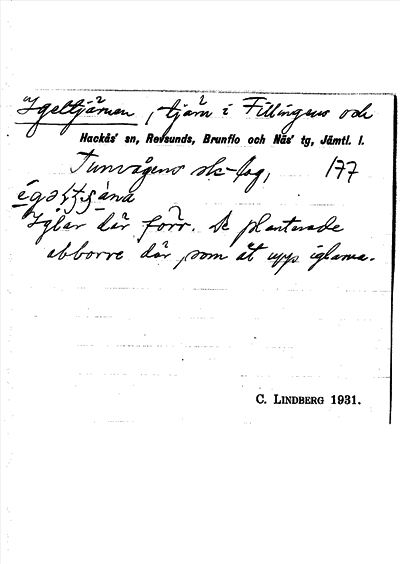 Igeltjärnen, tjärn i Fillingens och
Hackås' sn, Revsunds, Brunflo och Näs' tg, Jämtl. l.
Tunvågens sk-lag, 177
Iglar där förr. De planterade
abborre där, som åt upp iglarna.
C. LINDBERG 1931.